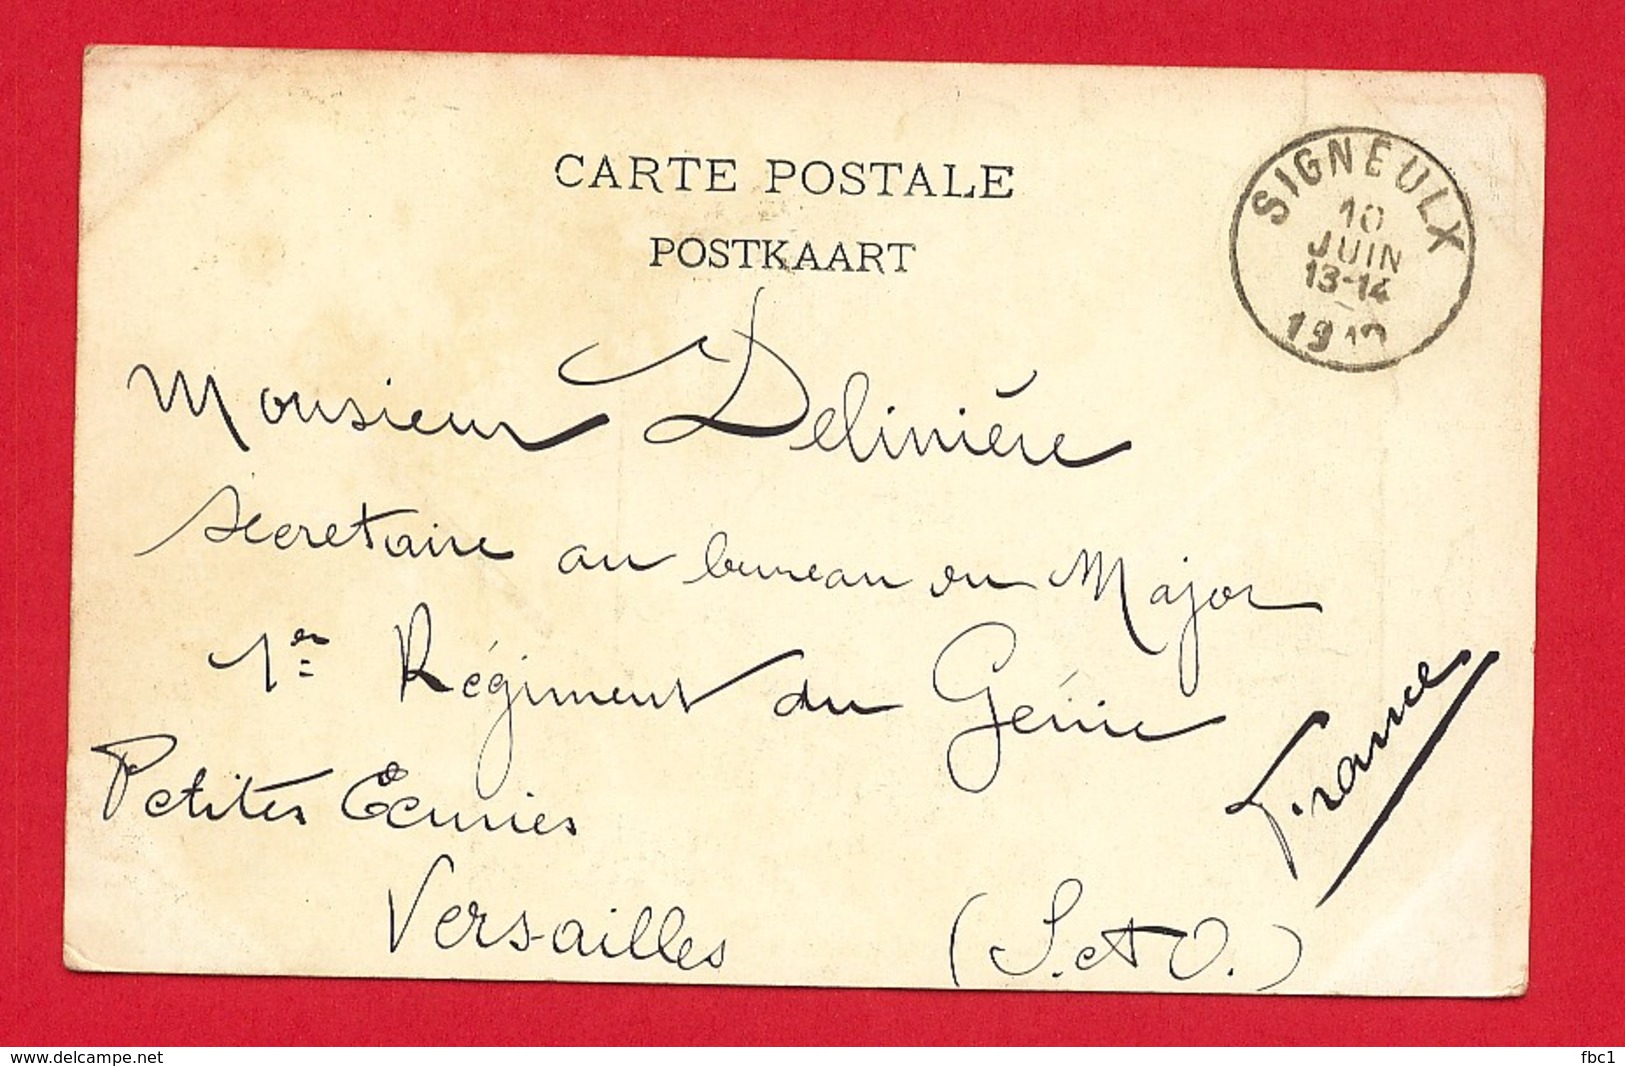 CARTE POSTALE
POSTKAART
SIGNEULX
10
JUIN
13-14
Monsieur Delinière
Secretaire au bureau du Major
1er Régiment du Génie
France
Petites Ecuries
Versailles (S. et O.)
www.delcampe.net
fbc1